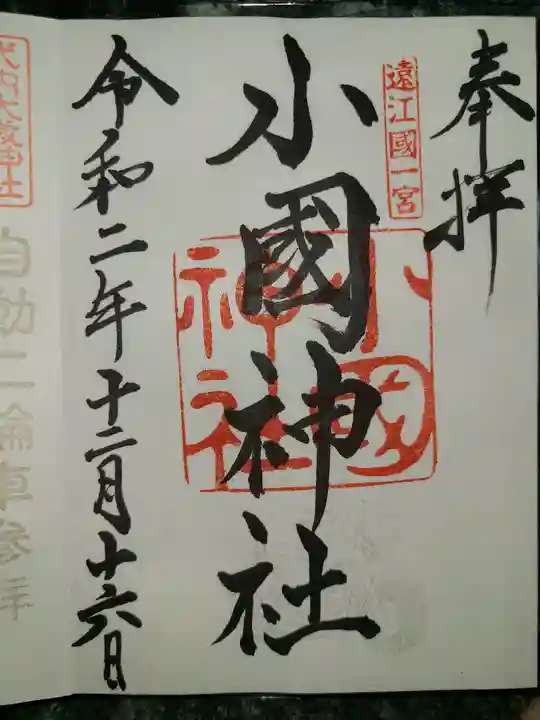 奉拝
遠江國一宮
小國神社
小國神社
令和二年十二月十六日
自動二輪車参拝